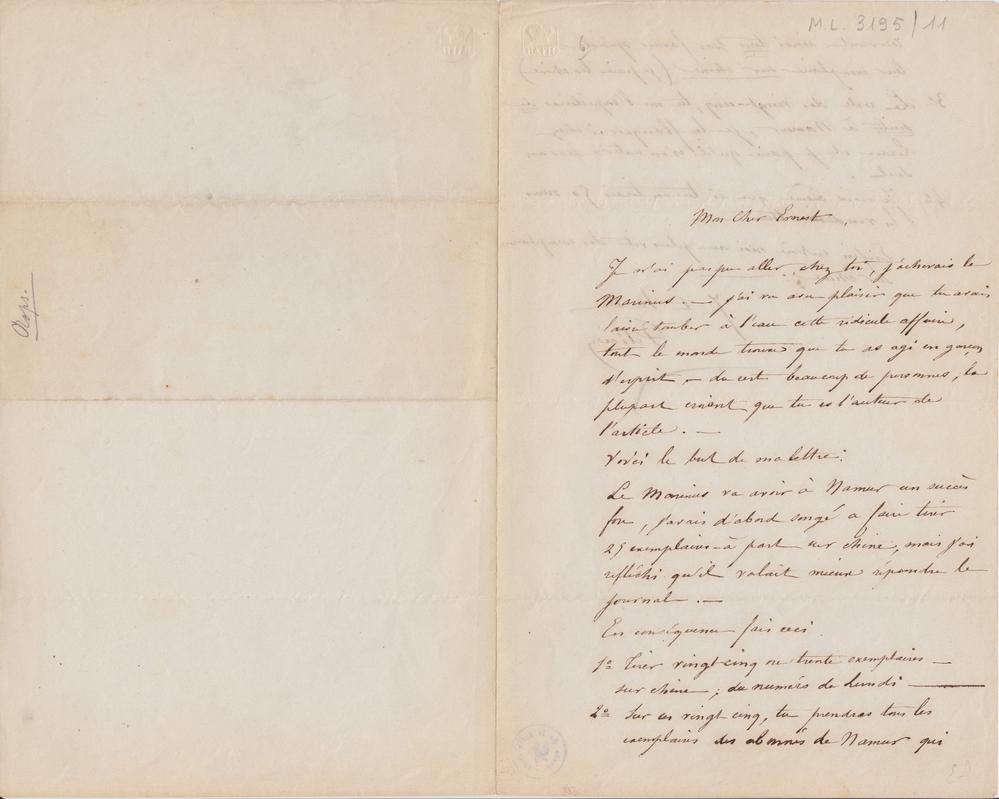 M.L. 3195/11
6
BATH
BATH
Rops.
Mon Cher Ernest,
Je n'ai pas pu aller chez toi, j'achevais le
Marinus. — j'ai vu avec plaisir que tu avais
laissé tomber à l'eau cette ridicule affaire,
tout le monde trouve que tu as agi en garçon
d'esprit, — du reste beaucoup de personnes, la
plupart croient que tu es l'auteur de
l'article. —
Voici le but de ma lettre:
Le Marinus va avoir à Namur un succès
fou, j'avais d'abord songé a faire tirer
25 exemplaires à part sur chine, mais j'ai
réfléchi qu'il valait mieux répandre le
journal. —
En conséquence fais ceci
1º Tirer vingt-cinq ou trente exemplaires —
sur chine; du numéro de Lundi —
2º Sur ces vingt cinq, tu prendras tous les
exemplaires des abonnés de Namur qui